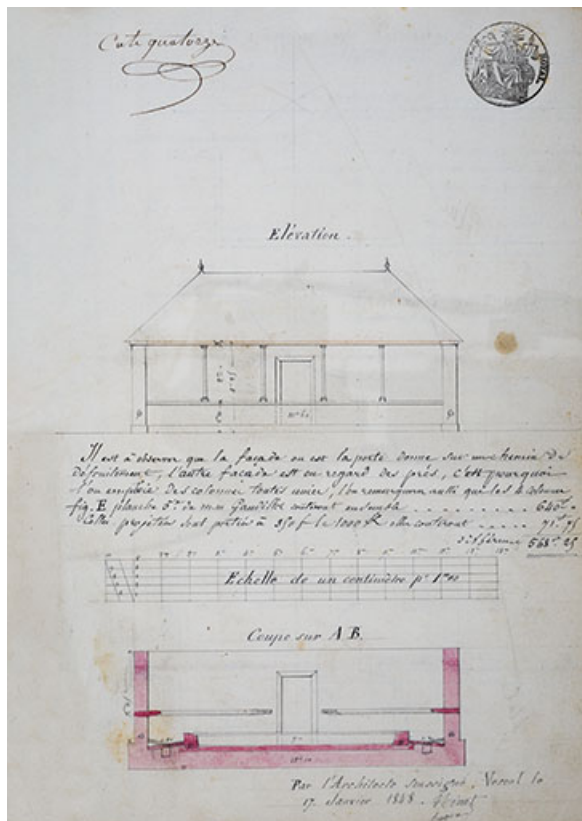 Cote quatorze
ROYAL
Elévation.
Il est à observer que la façade ou est la porte donne sur un chemin de
défruitement, l'autre façade est en regard des prés, c'est pourquoi
l'on emploie des colonnes toutes unies, l'on remarquera aussi que les 4 colonnes
fig. E planche 5e de mm coutent ensemble 640 "
Celles projetées sont portées à 350 f le 1000 K elles coutent 71. 75
différence 568. 25
Echelle de un centimètre pr 1m00
Coupe sur A B.
Par l'Architecte soussigné, Vesoul le
17 Janvier 1848.